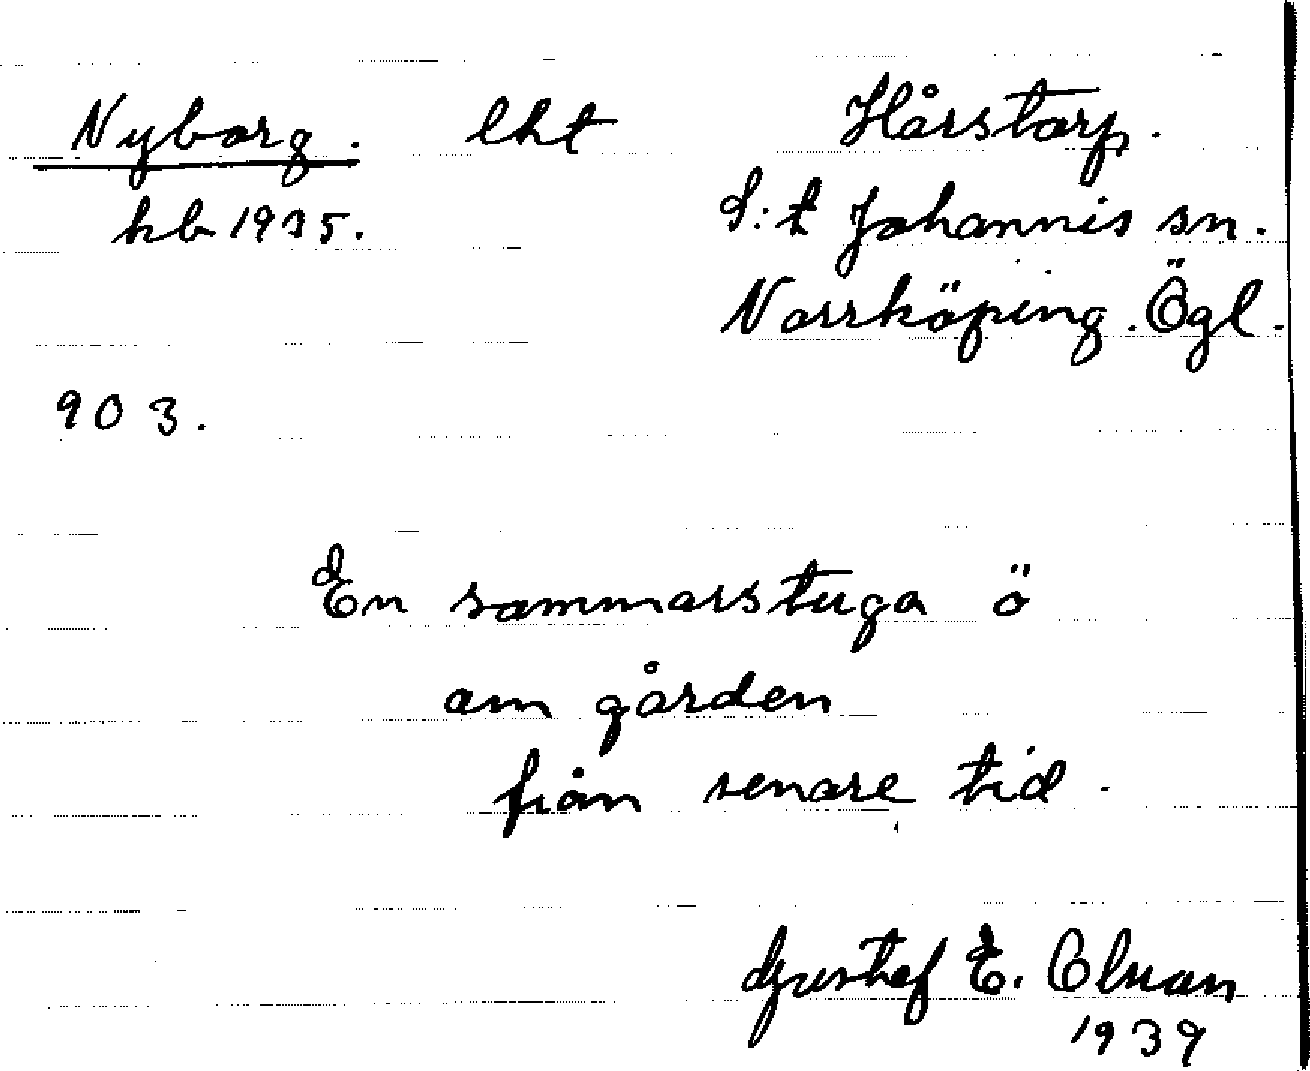 Nyborg. lht Hårstorp.
hb 1935. S:t Johannis sn.
Norrköping. Ögl.
903.
En sommarstuga ö
om gården
från senare tid.
Gustaf E.
1939